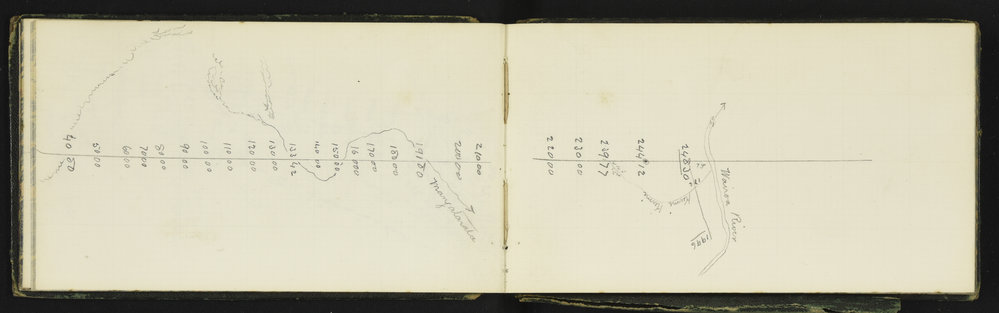 4080
5000
6000
7000
8000
9000
10000
11000
12000
13000
13362
14000
15000
16000
17000
18000
19170
20000
21000
22000
23000
23977
24412
24830
1996
Wairoa River